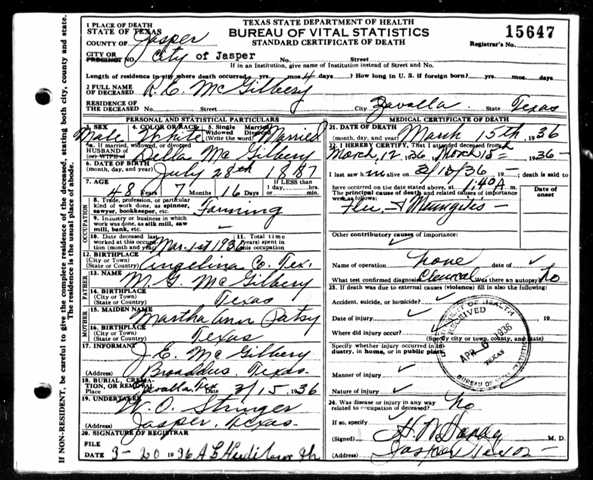 TEXAS STATE DEPARTMENT OF HEALTH
BUREAU OF VITAL STATISTICS
STANDARD CERTIFICATE OF DEATH
15647
Registrar's No.
1 PLACE OF DEATH
STATE OF TEXAS
COUNTY OF Jasper
CITY OR PRECINCT NO. City of Jasper No. Street
If in an Institution, give name of Institution instead of Street and No.
Length of residence in city where death occurred yrs. mos. 4 days. How long in U. S. if foreign born? yrs. mos. days.
2 FULL NAME OF DECEASED R. C. McGilbery
RESIDENCE OF THE DECEASED No. Street City Zavalla State Texas
PERSONAL AND STATISTICAL PARTICULARS
3. SEX Male
4. COLOR OR RACE White
5. Single Married Widowed Divorced (Write the word) Married
a. If married, widowed or divorced
HUSBAND OF or WIFE OF Della McGilbery
6. DATE OF BIRTH (month, day, and year) July 28th 1887
7. AGE 48 Years 7 Months 16 Days If LESS than 1 day, hrs. min.
OCCUPATION
8. Trade, profession, or particular kind of work done, as spinner, sawyer, bookkeeper, etc. Farming
9. Industry or business in which work was done, as silk mill, saw mill, bank, etc.
10. Date deceased last worked at this occupation (month and year) Mar. 1st 1936
11. Total time (years) spent in this occupation
12. BIRTHPLACE (City or Town) (State or Country) Angelina Co. Tex.
FATHER
13. NAME M. G. McGilbery
14. BIRTHPLACE (City or Town) (State or Country) Texas
MOTHER
15. MAIDEN NAME Martha Ann Patsy
16. BIRTHPLACE (City or Town) (State or Country) Texas
17. INFORMANT J. E. McGilbery
(Address) Broaddus Texas
18. BURIAL, CREMATION, OR REMOVAL
Place Zavalla Date 3/15 1936
19. UNDERTAKER W. O. Stringer
(Address) Jasper, Texas
20. SIGNATURE OF REGISTRAR
FILE DATE 3-20 1936
MEDICAL CERTIFICATE OF DEATH
21. DATE OF DEATH (month, day, and year) March 15th 1936
22. I HEREBY CERTIFY, That I attended deceased from
March 12, 36 to March 15th 1936
I last saw him alive on 3/15/36 death is said to
have occurred on the date stated above, at 1:40 A m.
The principal cause of death and related causes of importance were as follows:
Date of onset
Flu & Meningitis
Other contributory causes of importance:
Name of operation none date of
What test confirmed diagnosis? Clinical Was there an autopsy? No
23. If death was due to external causes (violence) fill in also the following:
Accident, suicide, or homicide?
Date of injury 19
Where did injury occur?
(Specify city or town, county, and state)
Specify whether injury occurred in industry, in home, or in public place.
Manner of injury
Nature of injury
24. Was disease or injury in any way related to occupation of deceased? No
If so, specify
(Signed) M. D.
(Address) Jasper Texas
RECEIVED
APR 1936
TEXAS
BUREAU OF VITAL STATISTICS